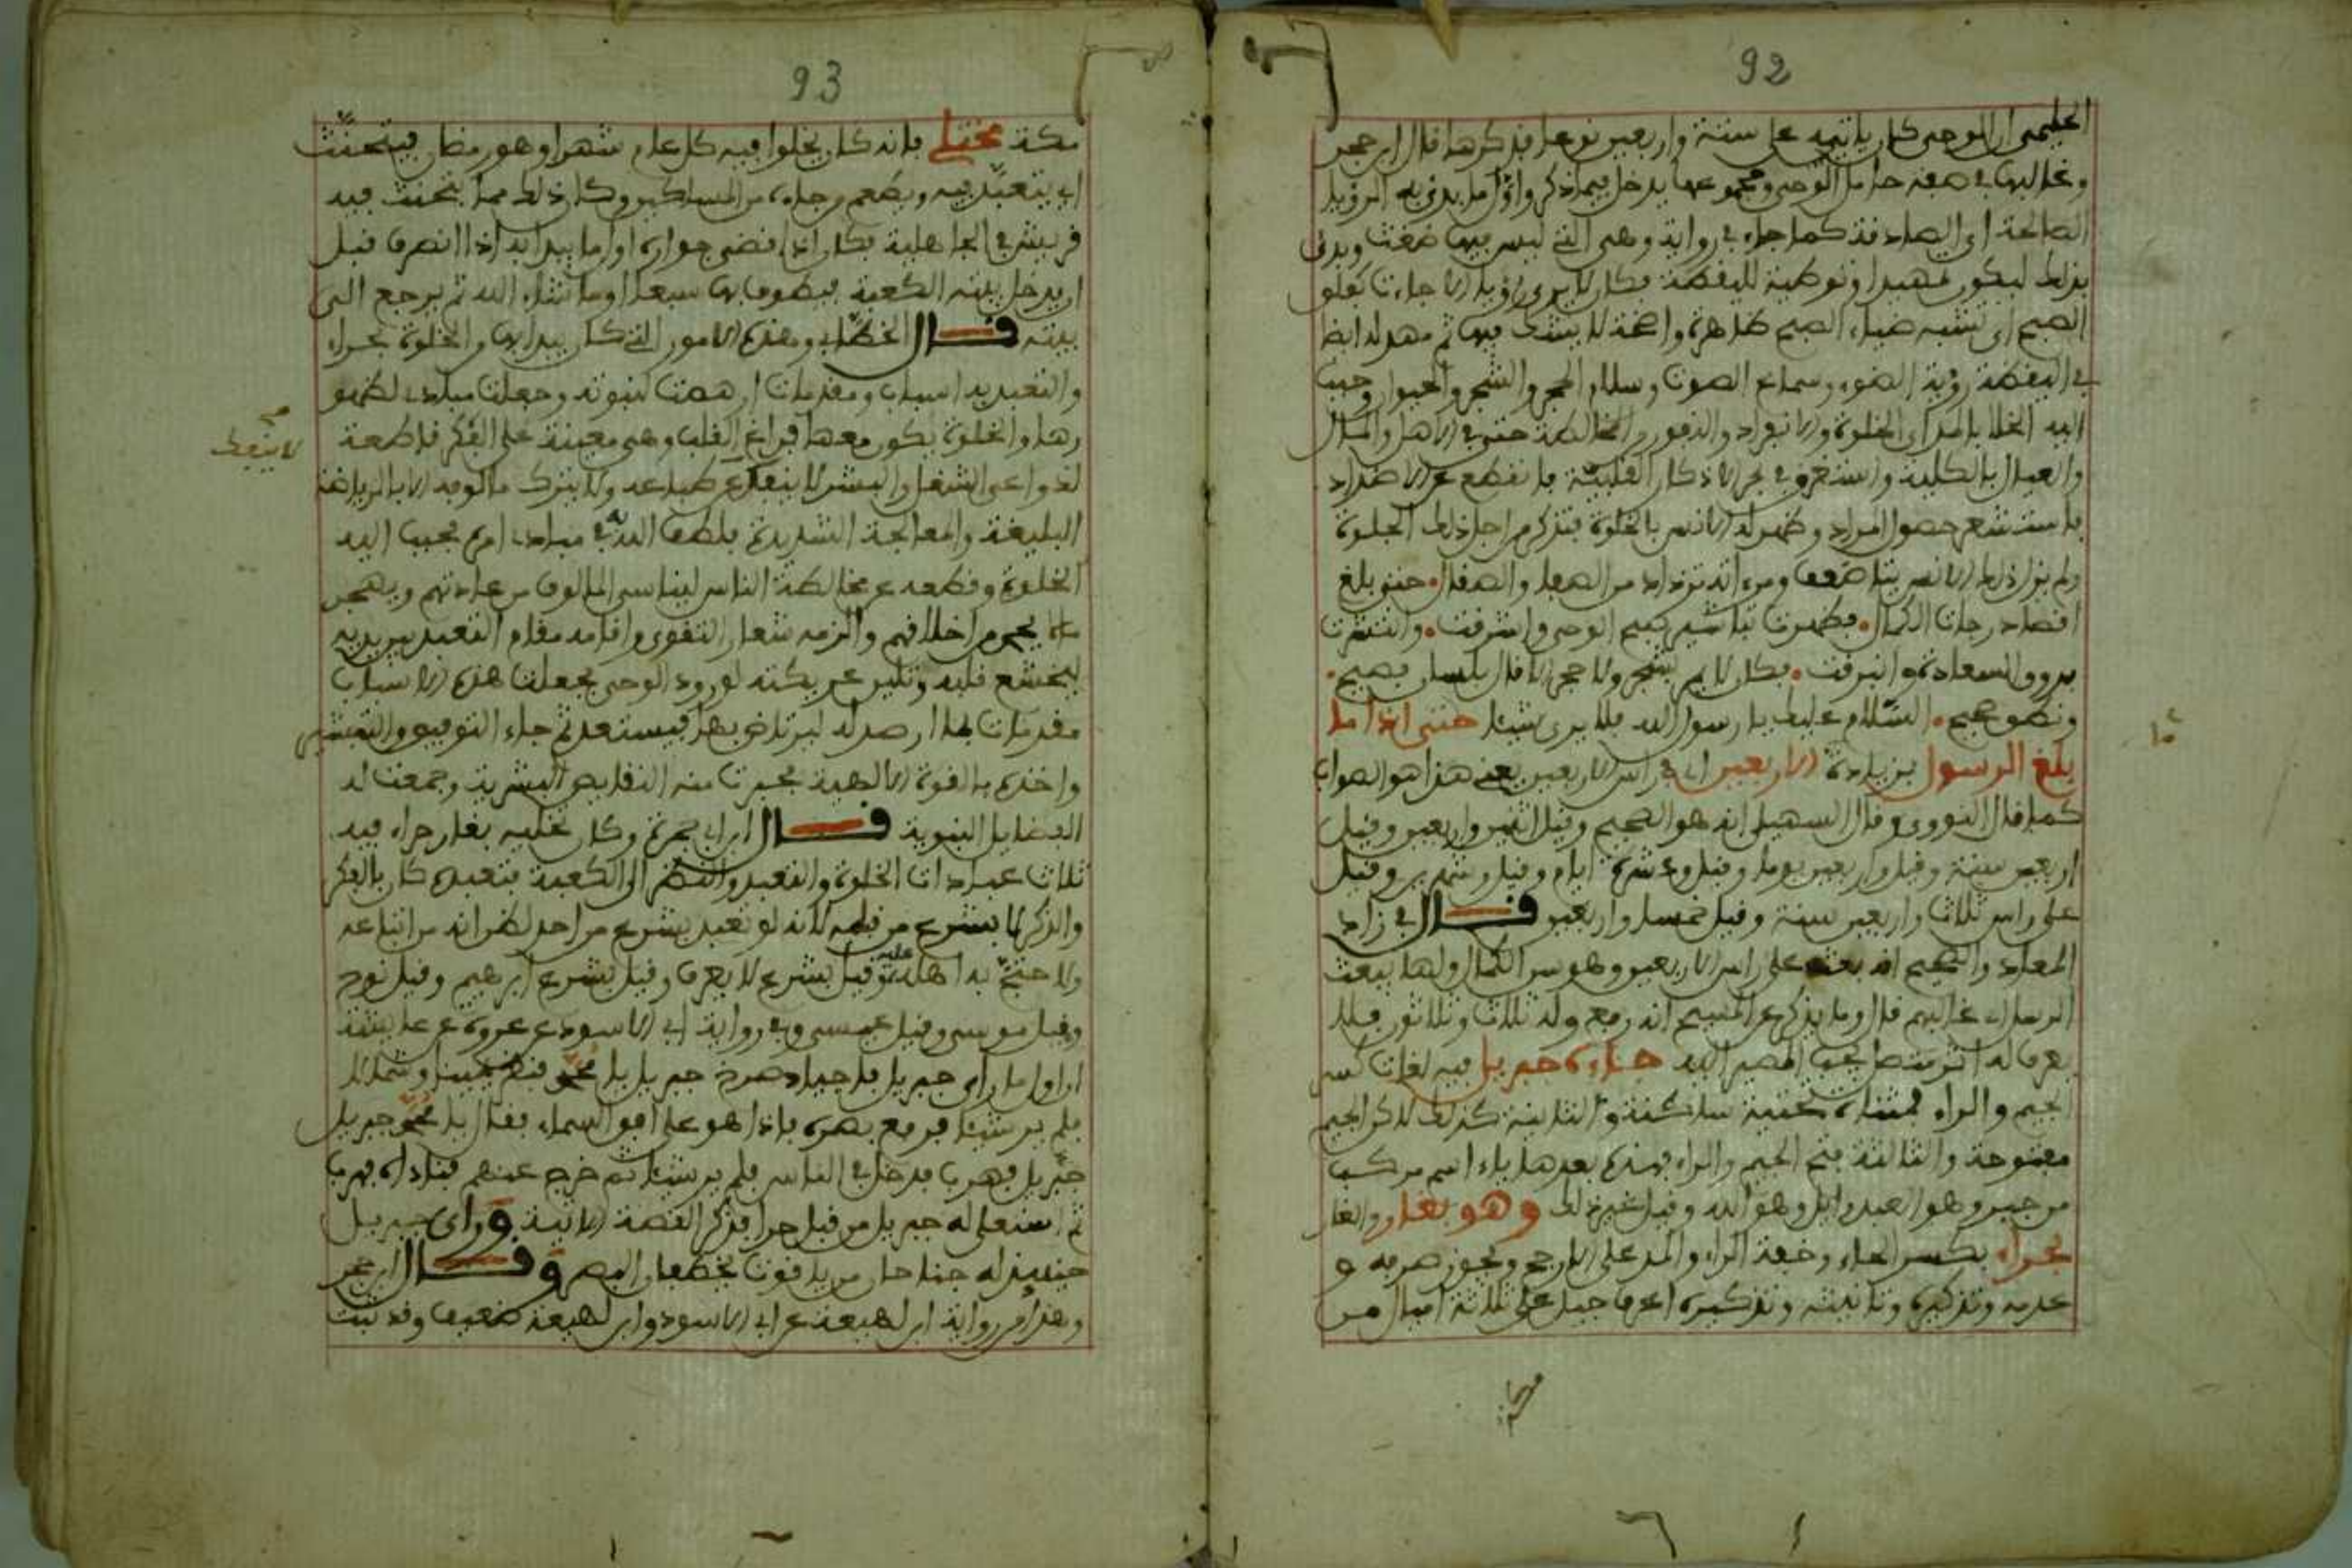 92
الحليمى ان الوحى كان ياتيه على ستة واربعين نوعا فذكرها قال ابن حجر
وغالبها فى صفة حامل الوحى ومجموعها يدخل فيما ذكر واول ما بدئ به الرؤيا
الصالحة اى الصادقة كما جاء فى رواية وهى التى ليس فيها ضغث وبدئ
بذلك ليكون تمهيدا وتوطية لليقظة فكان لا يرى رؤيا الا جاءت كفلق
الصبح اى تشبه ضياء الصبح ظاهرة واضحة لا يشك فيها ثم مهد له ايضا
فى اليقظة رؤية الضوء وسماع الصوت وسلام الحجر والشجر والحيوان وحبب
اليه الخلا بالمد اى الخلوة والانفراد والنفور المخالطة حتى فى الاهل والمال
والعيال بالكلية واستغرق فى بحر الاذكار القلبية فانقطع عن الاضداد
فاستشعر حصول المراد وظهر له الانس بالخلوة فتذكر من اجل ذلك الجلوة
ولم يزل ذلك الانس يتضاعف ومرءاته تزداد من الصفا والصقال حتى بلغ
اقصا درجات الكمال فظهرت تباشير صبح الوحى واشرقت وانتشرت
بروق السعادة وابرقت فكان لا يمر بشجر ولا حجر الا قال بلسان فصيح
ونطق صحيح السلام عليك يا رسول الله فلا يرى شيئا حتى اذا ما
بلغ الرسول بزيادة الاربعين اى فى راس الاربعين يعنى هذا هو الصواب
كما قال النووى وقال السهيلى انه هو الصحيح وقيل اثنين واربعين وقيل
اربعين سنة وقيل واربعين يوما وقيل وعشرة ايام وقيل وشهرين وقيل
على راس ثلاث واربعين سنة وقيل خمسا واربعين قال فى زاد
المعاد والصحيح انه بعث على راس الاربعين وهو سن الكمال ولها يبعث
الرسل غالبهم قال وما يذكر عن المسيح انه رفع وله ثلاث وثلاثون فلا
يعرف له اثر متصل يجب المصير اليه جاءه جبريل فيه لغات كسر
الجيم والراء فمثناة تحتية ساكنة والثانية كذلك لاكن الجيم
مفتوحة والثالثة فتح الجيم والراء فهمزة بعدها ياء اسم مركب
من جبر وهو العبد وايل وهو الله وقيل غير ذلك وهو بغار والغار
بحراء بكسر الحاء وخفة الراء والمد على الارجح ويجوز صرفه و
عدمه وتذكيره وتانيثه وتذكيره اعرف جبل على ثلاثة اميال من
93
مكة مختلى فانه كان يخلوا فيه كل عام شهرا وهو رمضان فيتحنث
اى يتعبد فيه ويطعم من جاءه من المساكين وكان ذلك مما يتحنث فيه
قريش فى الجاهلية فكان اذا قضى جواره اول ما يبدا به اذا انصرف قبل
ان يدخل بيته الكعبة فيطوف بها سبعا او ما شاء الله ثم يرجع الى
بيته قال الخطابى وهذه الامور التى كان يبدا بها والخلوة بحراء
والتعبد به اسباب ومقدمات ارهصت لنبوته وجعلت مبادى لظهو
رها والخلوة يكون معها فراغ القلب وهى معينة على الفكر قاطعة
لدواعى الشغل والبشر لا ينفك عن طباعه ولا يترك مالوفه الا بالرياضة
لا ينفك
البليغة والمعالجة الشديدة فلطف الله به فى مبادى امره فحبب اليه
الخلوة وقطعه عن مخالطة الناس ليناسى المالوف من عاداتهم ويهجر
ما يحرم من اخلاقهم والزمه شعار التقوى واقامه مقام التعبد بين يديه
ليخشع قلبه وتلين عريكته لورود الوحى فجعلت هذه الاسباب
مقدمات لما ارصد له ليرتاض بها فيستعد ثم جاء التوفيق والتبشير
واخذه بالقوة الالهية فجبرت منه النقايص البشرية وجمعت له
الفضايل النبوية قال ابن ابى جمرة وكان تخليه بغار حراء فيه
ثلاث عبادات الخلوة والتعبد والنظر الى الكعبة فتعبده كان بالفكر
والذكر لا بشرع من قبله لانه لو تعبد بشرع من احد لظن انه من اتباعه
ولاحتج به اهله عليه وقيل بشرع لا يعرف وقيل بشرع ابرهيم وقيل نوح
وقيل موسى وقيل عيسى وفى رواية ابى الاسود عن عروة عن عايشة
ان اول ما راى جبريل باجياد صرخ جبريل يا محمد فنظر يمينا وشمالا
فلم ير شيئا فرفع بصره فاذا هو على افق السماء فقال يا محمد جبريل
جبريل فهرب فدخل فى الناس فلم ير شيئا ثم خرج عنهم فناداه فهرب
ثم استعلى له جبريل من قبل حرا فذكر القصة الاتية وراى جبريل
حينيذ له جناحان من ياقوت يخطفان البصر وقال ابن حجر
وهذا من رواية ابن لهيعة عن ابى الاسود وابن لهيعة ضعيف وقد ثبت